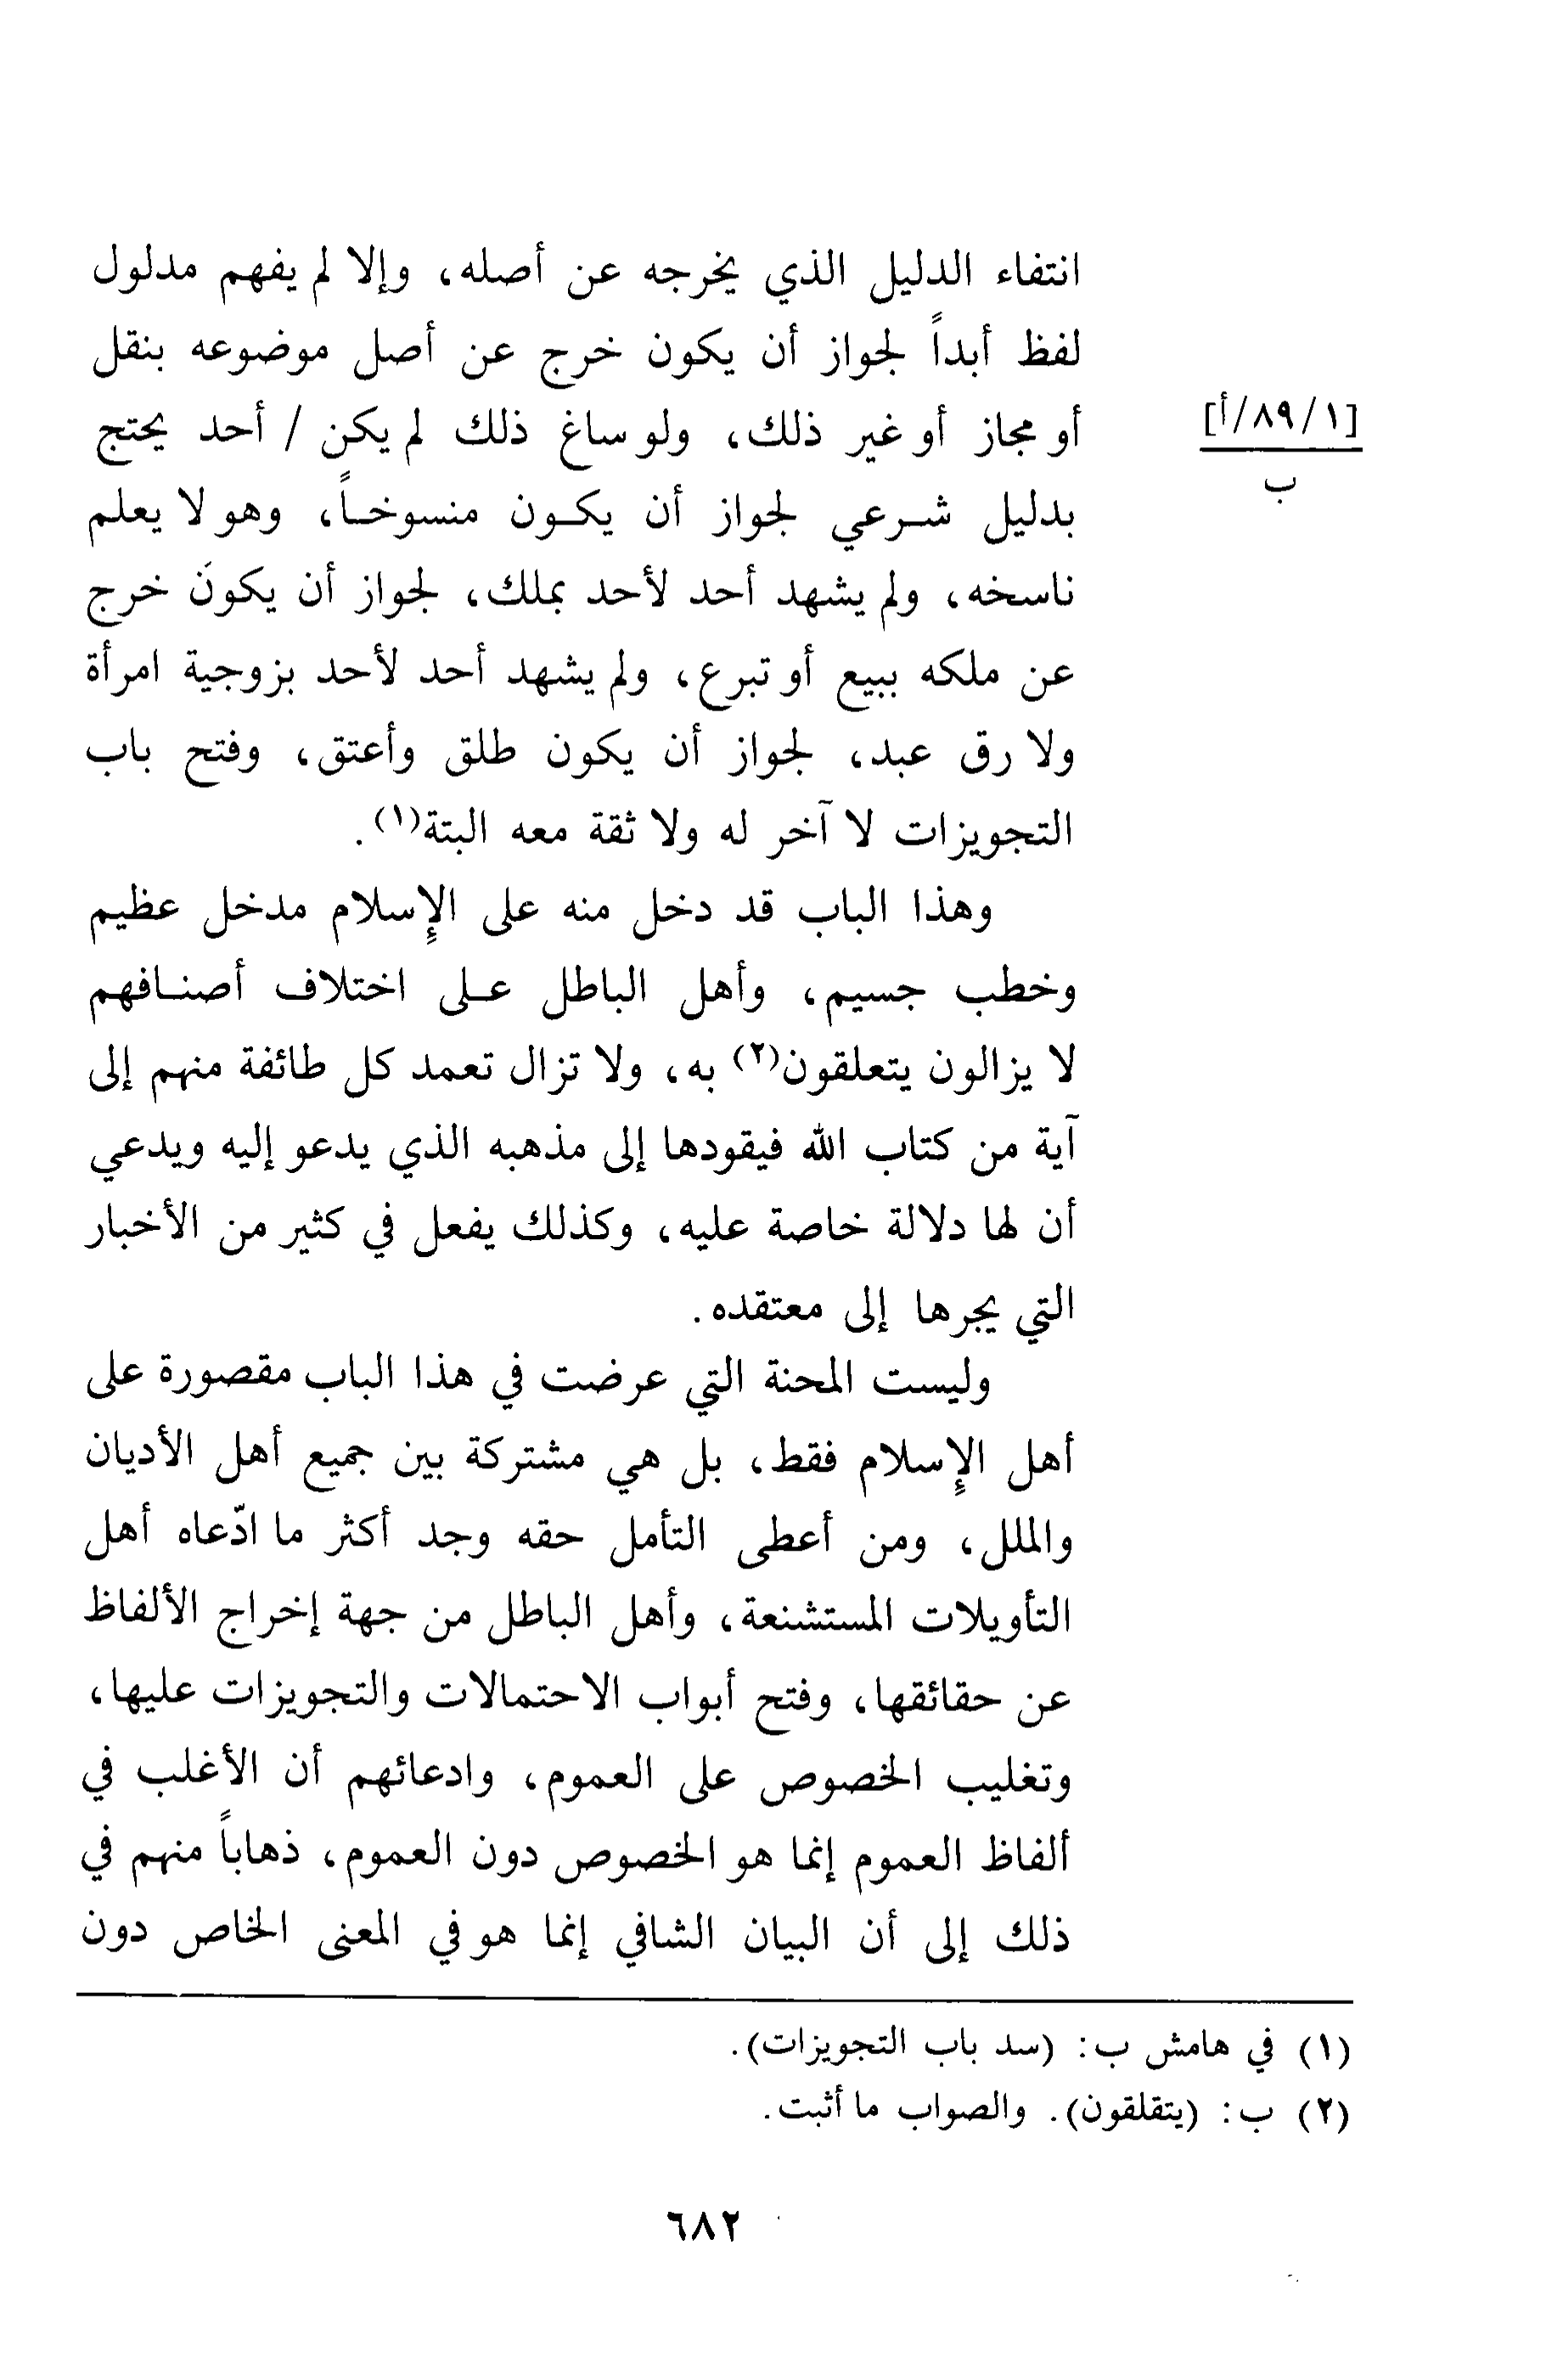 انتفاء الدليل الذي يخرجه عن أصله، وإلا لم يفهم مدلول
لفظ أبداً لجواز أن يكون خرج عن أصل موضوعه بنقل
أو مجاز أو غير ذلك، ولو ساغ ذلك لم يكن / أحد يحتج
[١/٨٩/أ]
ب
بدليل شـرعي لجواز أن يكـون منسوخـاً، وهو لا يعلم
ناسخه، ولم يشهد أحد لأحد بملك، لجواز أن يكونَ خرج
عن ملكه ببيع أو تبرع، ولم يشهد أحد لأحد بزوجية امرأة
ولا رق عبد، لجواز أن يكون طلق وأعتق، وفتح باب
التجويزات لا آخر له ولا ثقة معه البتة(١).
وهذا الباب قد دخل منه على الإِسلام مدخل عظيم
وخطب جسيم، وأهل الباطل عـلى اختلاف أصنـافهم
لا يزالون يتعلقون(٢) به، ولا تزال تعمد كل طائفة منهم إلى
آية من كتاب الله فيقودها إلى مذهبه الذي يدعو إليه ويدعي
أن لها دلالة خاصة عليه، وكذلك يفعل في كثير من الأخبار
التي يجرها إلى معتقده.
وليست المحنة التي عرضت في هذا الباب مقصورة على
أهل الإِسلام فقط، بل هي مشتركة بين جميع أهل الأديان
والملل، ومن أعطى التأمل حقه وجد أكثر ما ادّعاه أهل
التأويلات المستشنعة، وأهل الباطل من جهة إخراج الألفاظ
عن حقائقها، وفتح أبواب الاحتمالات والتجويزات عليها،
وتغليب الخصوص على العموم، وادعائهم أن الأغلب في
ألفاظ العموم إنما هو الخصوص دون العموم، ذهاباً منهم في
ذلك إلى أن البيان الشافي إنما هو في المعنى الخاص دون
(١) في هامش ب: (سد باب التجويزات).
(٢) ب: (يتقلقون). والصواب ما أثبت.
٦٨٢